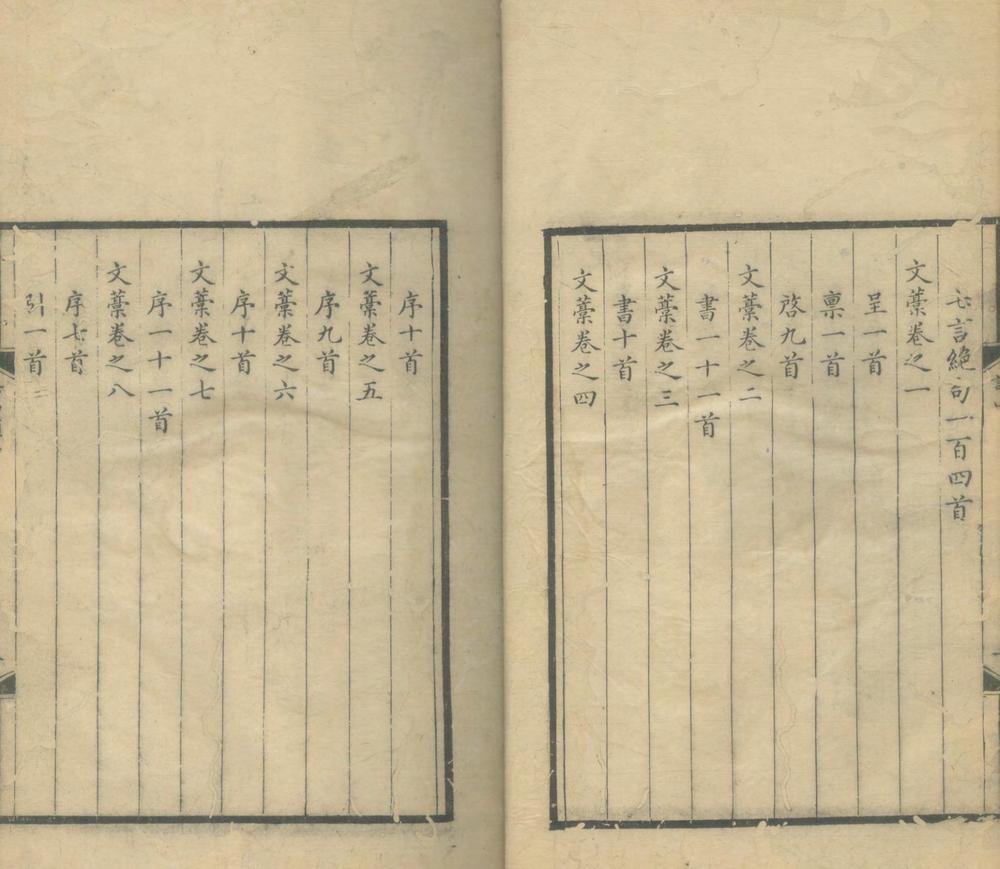 七言絶句一百四首
文藁卷之一
呈一首
禀一首
啓九首
文藁卷之二
書一十一首
文藁卷之三
書十首
文藁卷之四
序十首
文藁卷之五
序九首
文藁卷之六
序十首
文藁卷之七
序一十一首
文藁卷之八
序七首
引一首